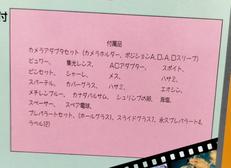 付
付属品
カメラアダプタセット (カメラホルダー、ポジションA、□、A□スリーブ)
ビュワー、 集光レンズ、 A□アダプター、 スポイト、
ピンセット、 シャーレ、 メス、 ハサミ、
スパーテル、 カバーグラス、 ハサミ、 エオシン、
メチレンブルー、 カナダバルサム、 シュリンプの卵、 海塩、
スペーサー、 スペア電球、
プレパラートセット、(ホールグラス)、スライドグラス7、永久プレパラート4、
ラベル12)